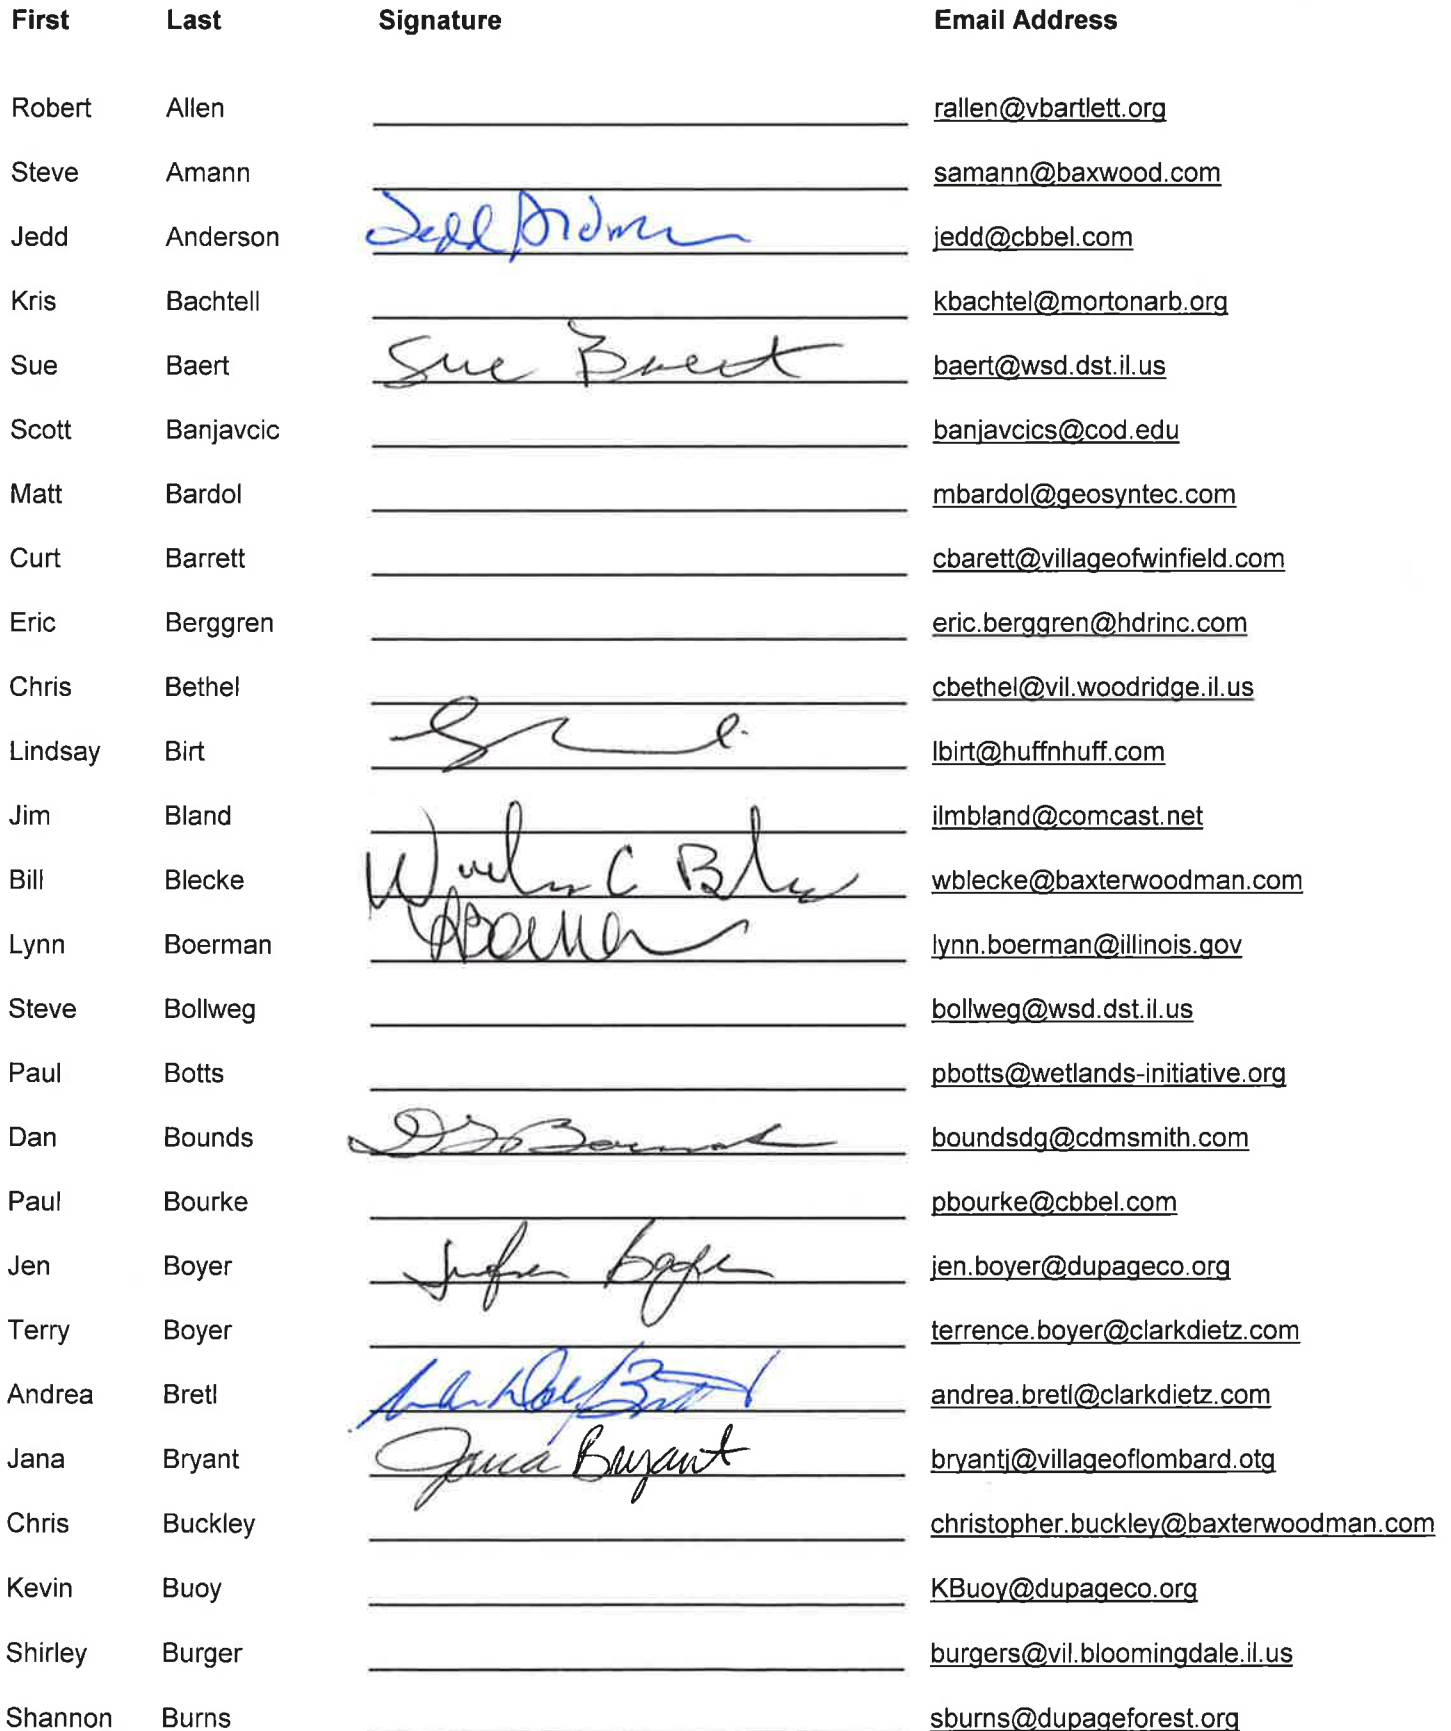 First Last Signature Email Address
Robert Allen rallen@vbartlett.org
Steve Amann samann@baxwood.com
Jedd Anderson Jedd Anderson jedd@cbbel.com
Kris Bachtell kbachtel@mortonarb.org
Sue Baert Sue Baert baert@wsd.dst.il.us
Scott Banjavcic banjavcics@cod.edu
Matt Bardol mbardol@geosyntec.com
Curt Barrett cbarett@villageofwinfield.com
Eric Berggren eric.berggren@hdrinc.com
Chris Bethel cbethel@vil.woodridge.il.us
Lindsay Birt lbirt@huffnhuff.com
Jim Bland ilmbland@comcast.net
Bill Blecke wblecke@baxterwoodman.com
Lynn Boerman lynn.boerman@illinois.gov
Steve Bollweg bollweg@wsd.dst.il.us
Paul Botts pbotts@wetlands-initiative.org
Dan Bounds boundsdg@cdmsmith.com
Paul Bourke pbourke@cbbel.com
Jen Boyer jen.boyer@dupageco.org
Terry Boyer terrence.boyer@clarkdietz.com
Andrea Bretl andrea.bretl@clarkdietz.com
Jana Bryant Jana Bryant bryantj@villageoflombard.otg
Chris Buckley christopher.buckley@baxterwoodman.com
Kevin Buoy KBuoy@dupageco.org
Shirley Burger burgers@vil.bloomingdale.il.us
Shannon Burns sburns@dupageforest.org